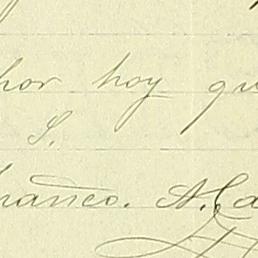 hor hoy qu
S.
ranco. A. Ca